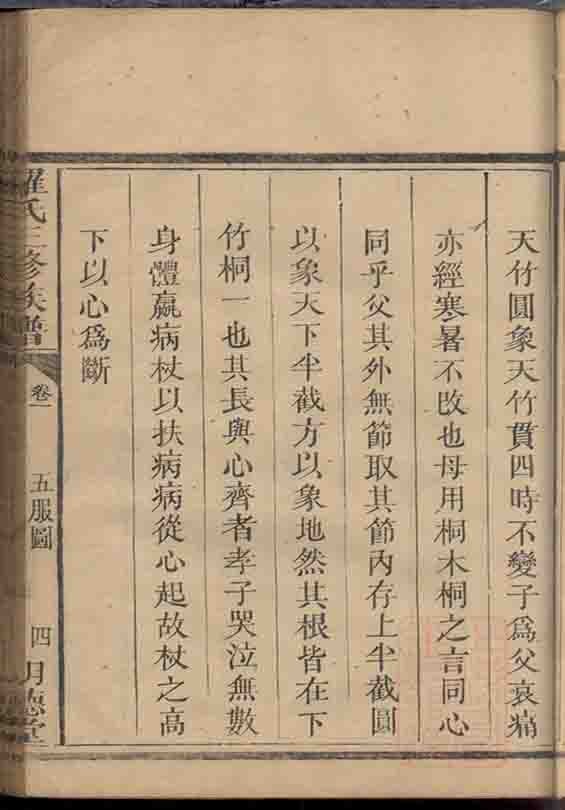 天竹圓象天竹貫四時不變子爲父哀痛
亦經寒暑不改也母用桐木桐之言同心
同乎父其外無節取其節內存上半截圓
以象天下半截方以象地然其根皆在下
竹桐一也其長與心齊者孝子哭泣無數
身體羸病杖以扶病病從心起故杖之高
下以心爲斷
羅氏三修族譜
卷一
五服圖
四
明德堂